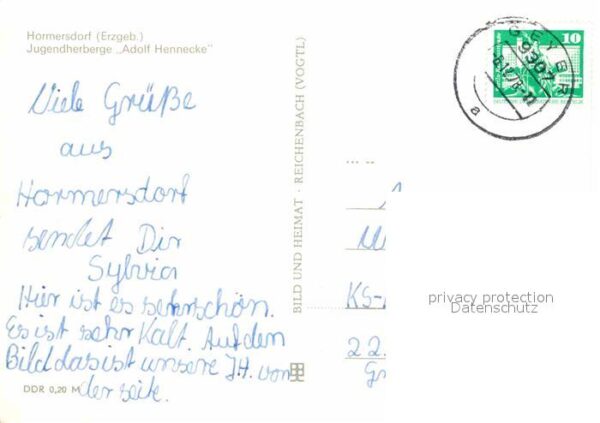 Hormersdorf (Erzgeb.)
Jugendherberge „Adolf Hennecke"
Viele Grüße
aus
Hormersdorf
sendet Dir
Sylvia
Hier ist es sehr schön.
Es ist sehr Kalt. Auf den
Bild das ist unsere J.H. von
der seite.
DDR 0,20 M
BILD UND HEIMAT · REICHENBACH (VOGTL)
GEYER
9302
a
10
KS-
22.
privacy protection
Datenschutz